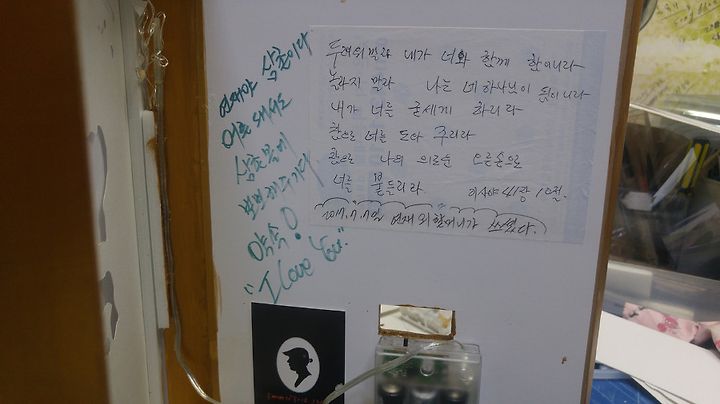 두려워말라 내가 너와 함께 함이니라
놀라지 말라 나는 네 하나님이 됨이니라
내가 너를 굳세게 하리라
참으로 너를 도와 주리라
참으로 나의 의로운 오른손으로
너를 붙들리라 이사야 41장 10절.
2017.7.7일 연재 외할머니가 쓰셨다.
연재야 삼촌이다
어른 돼서도
삼촌
약속!
"I Love You."